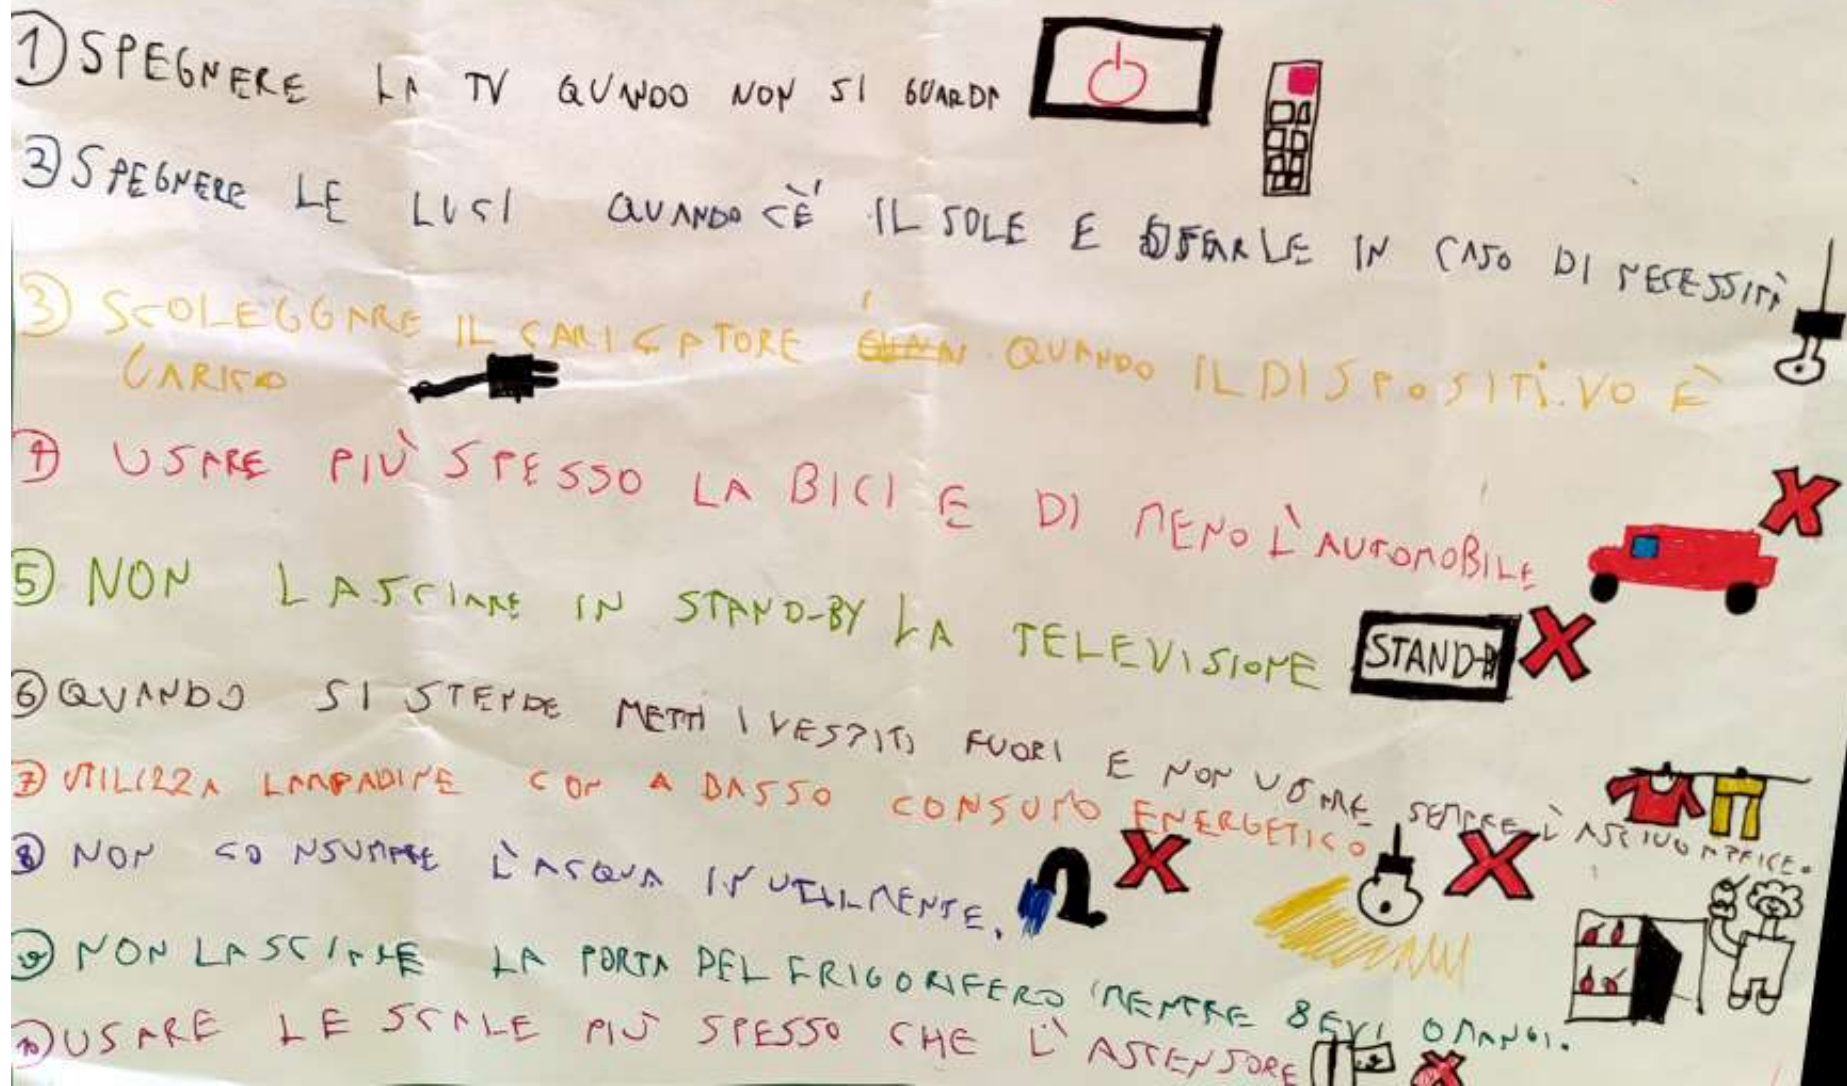 1) SPEGNERE LA TV QUANDO NON SI GUARDA
2) SPEGNERE LE LUCI QUANDO C'È IL SOLE E USARLE IN CASO DI NECESSITÀ
3) SCOLEGGARE IL CARICATORE QUANDO IL DISPOSITIVO È
CARICO
4) USARE PIÙ SPESSO LA BICI E DI MENO L'AUTOMOBILE
5) NON LASCIARE IN STAND-BY LA TELEVISIONE
STAND-B
6) QUANDO SI STENDE METTI I VESTITI FUORI E NON USARE SEMPRE L'ASCIUGATRICE.
7) UTILIZZA LAMPADINE CON A BASSO CONSUMO ENERGETICO
8) NON CONSUMARE L'ACQUA INUTILMENTE.
9) NON LASCIARE LA PORTA DEL FRIGORIFERO MENTRE BEVI O MANGI.
10) USARE LE SCALE PIÙ SPESSO CHE L'ASCENSORE